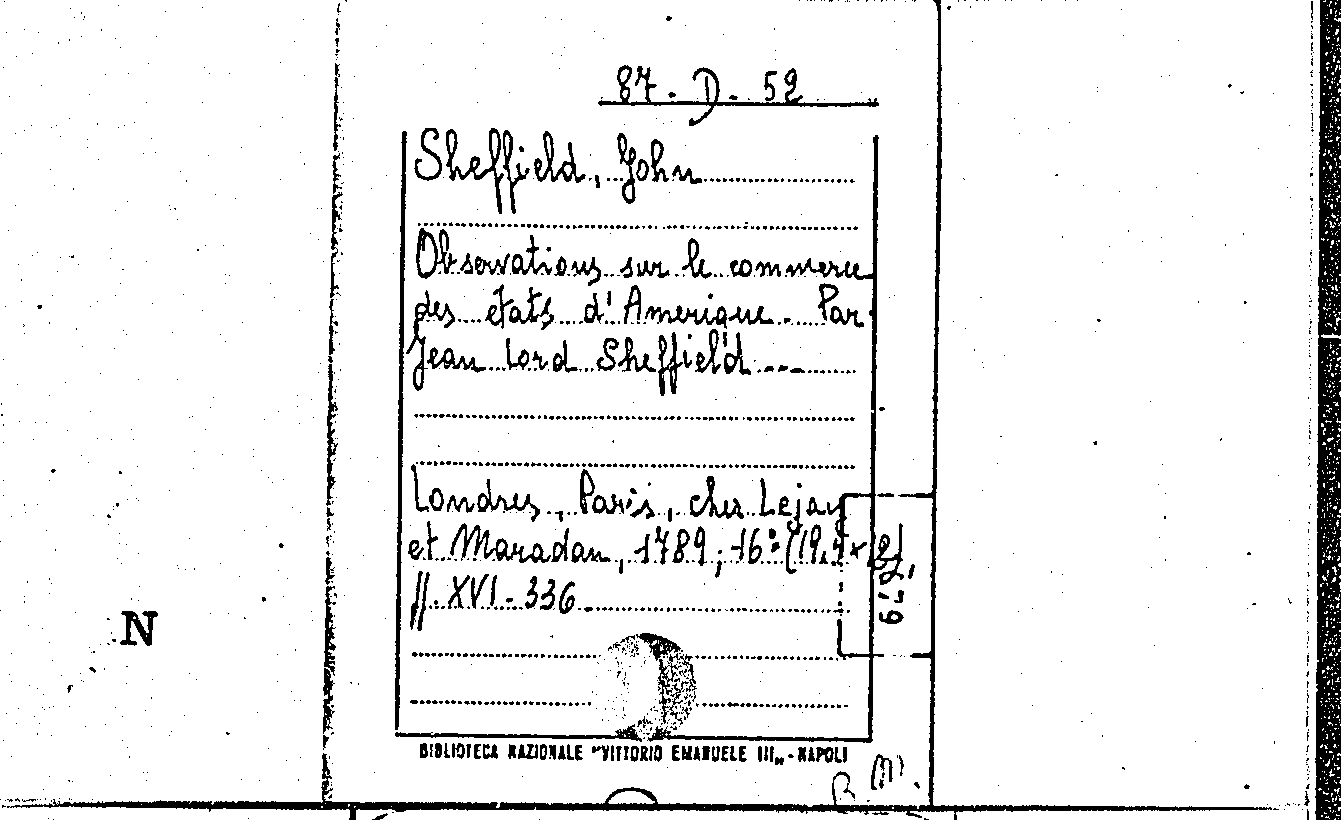 87 - D - 52
Sheffield, John
Observations sur le commerce
des états d'Amerique. Par
Jean Lord Sheffield ---
Londres, Paris, chez Lejay
et Maradan, 1789; 16° (19,4 ×
pp. XVI-336
N
BIBLIOTECA NAZIONALE "VITTORIO EMANUELE III„ - NAPOLI